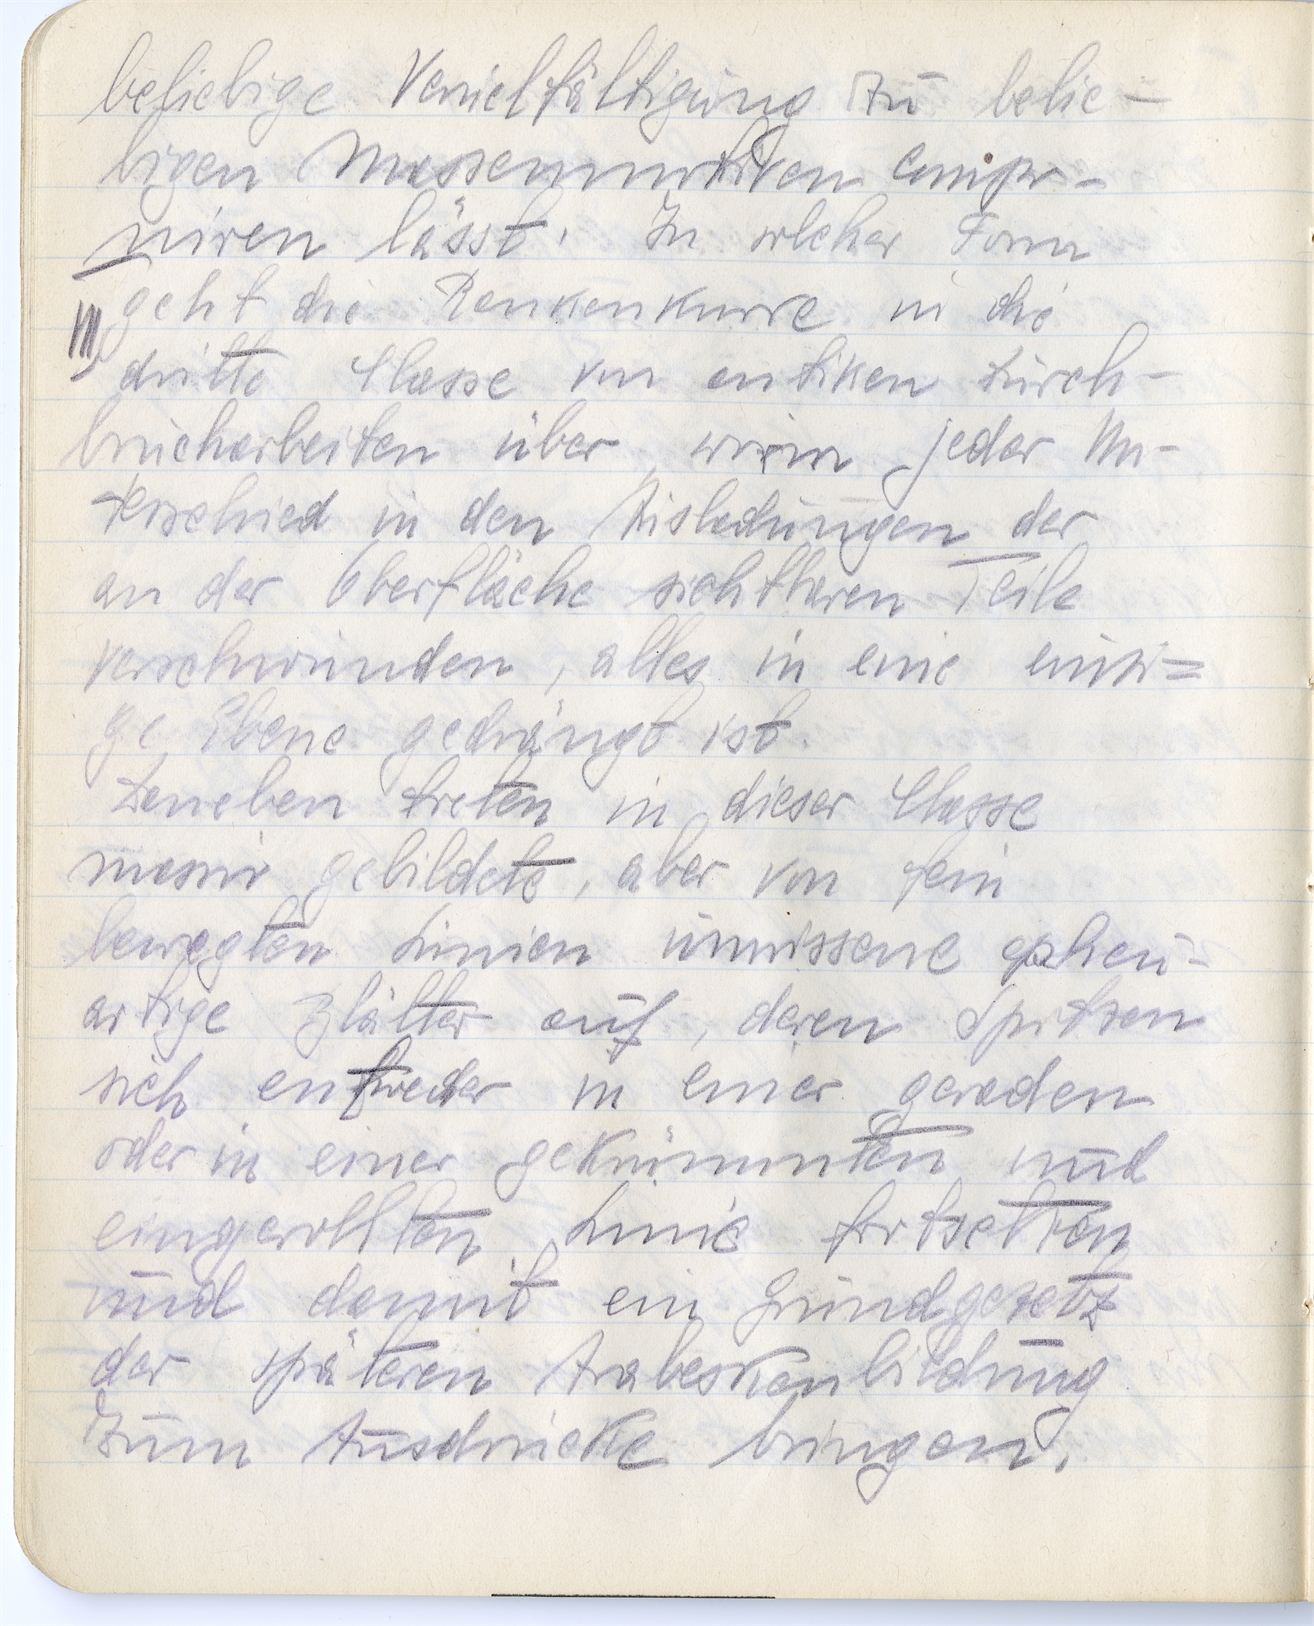 beliebige Vervielfältigung zu belie-
bigen Massenmotiven compo-
niren lässt. In solcher Form
III geht die Rankenkurve in die
dritte Classe von antiken Durch-
brucharbeiten über, worin jeder Un-
terschied in den Ausladungen der
an der Oberfläche sichtbaren Teile
verschwunden, alles in eine einzi=
ge Ebene gedrängt ist.
Daneben treten in dieser Classe
massiv gebildete, aber von fein
bewegten Linien umrissene epheu-
artige Blätter auf, deren Spitzen
sich entweder in einer geraden
oder in einer gekrümmten und
eingerollten Linie fortsetzen
und damit ein Grundgesetz
der späteren Arabeskenbildung
zum Ausdrucke bringen.